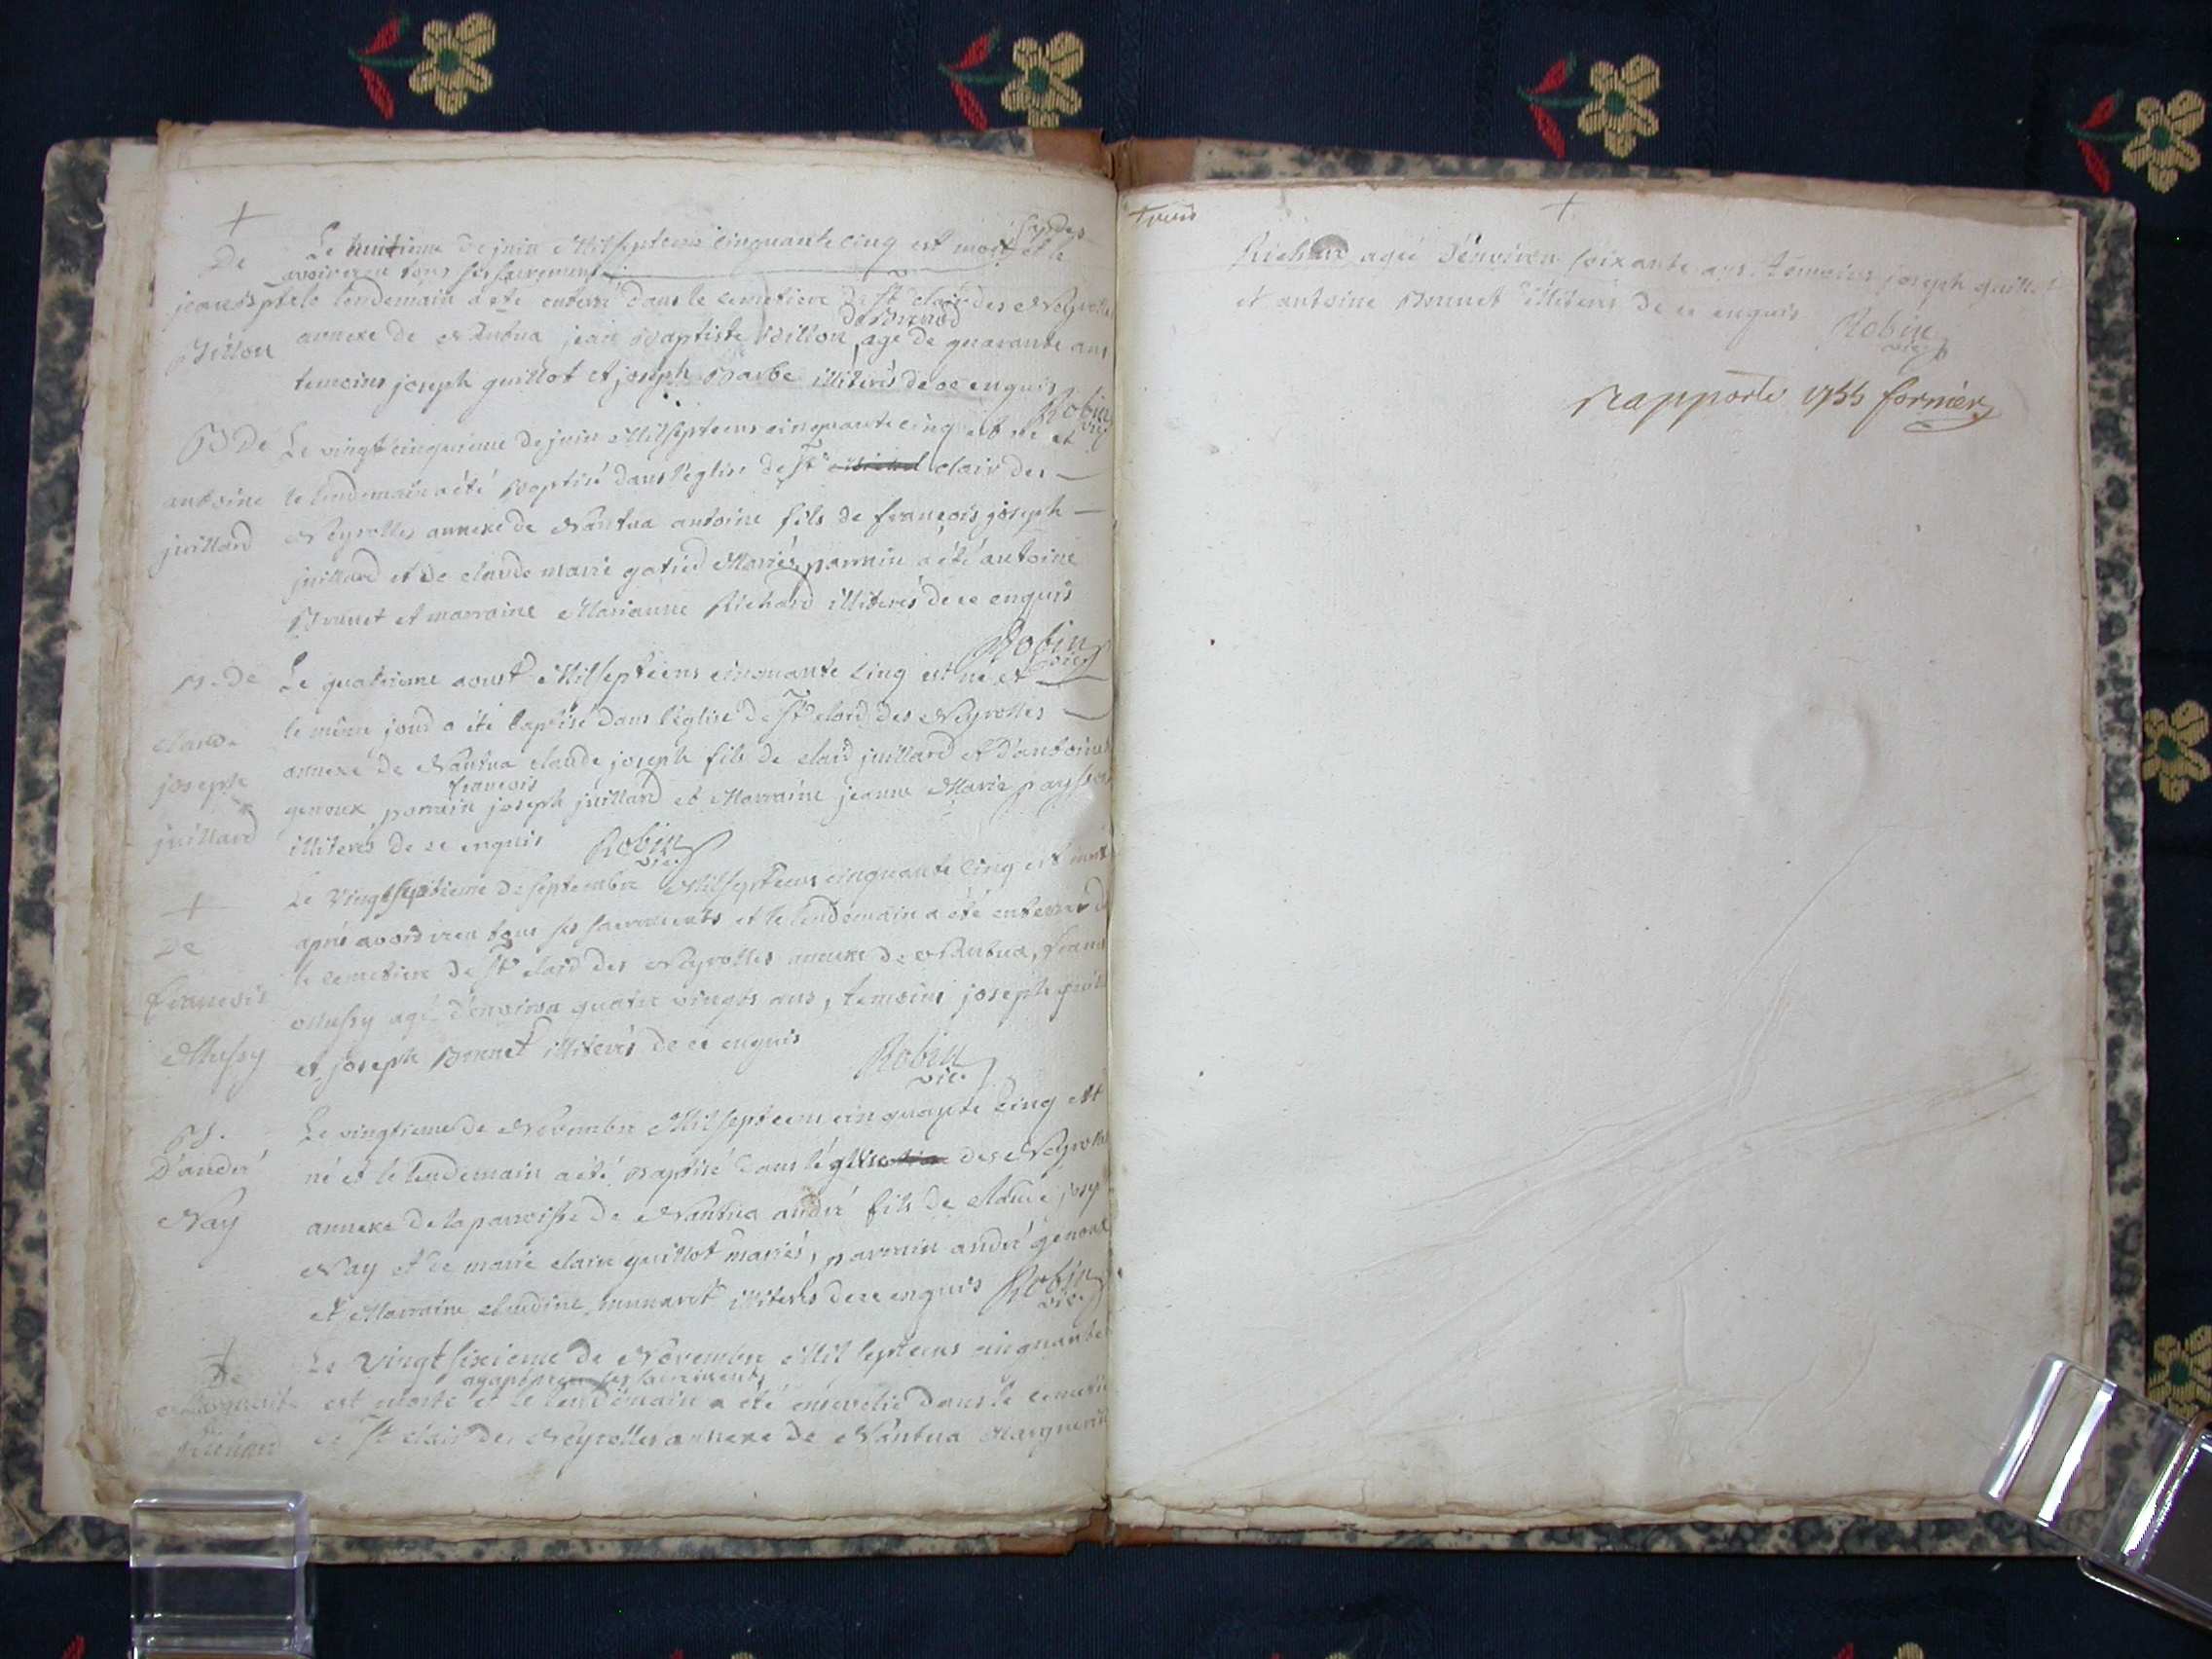 +
De
jean bpte
Billon
Le huitieme de juin Millsepteens cinquante cinq est mort et le
avoir recu tous ses sacrements
lendemain a eté enterré dans le cemetiere de St clair des Neyrolles
de Brenod
annexe de Nantua jean Baptiste Billion, agé de quarante ans
temoins joseph guillot et joseph Barbe illiterés de ce enquis
Robin
vic
B De
antoine
juillard
Le vingt cinquieme de juin Millsepteens cinquante cinq est né et
le lendemain a été Baptisé dans l'église de St clair des
Neyrolles annexe de Nantua antoine fils de francois joseph
juillard et de claude marie Mariés, parrain a été antoine
Brunet et marraine Marianne Richard illiterés de ce enquis
Robin
vic
B. De
claude
joseph
juillard
Le quatrieme aoust Millsepteens cinquante cinq est né et
le même jour a été baptisé dans l'église de St clair des Neyrolles
annexe de Nantua claude joseph fils de clair juillard et d'antoine
francois
genoux, parrain joseph juillard et Marraine jeanne Marie
illiterés de ce enquis Robin
vic
+
De
francois
Mussy
Le vingt septieme de septembre Millsepteens cinquante cinq est mort
aprés avoir recu tous ses sacrements et le lendemain a été enterré d
le cemetiere de St clair des Neyrolles annexe de Nantua, franc
Mussy agé d'environ quatre vingts ans, temoins joseph guill
et joseph Brunet illiterés de ce enquis
Robin
vic
B.
D'andré
Nay
Le vingtieme de Novembre Millsepteens cinquante cinq est
né et le lendemain a été Baptisé dans l'église des Neyrolles
annexe de la paroisse de Nantua andré fils de claude josep
Nay et de marie claire guillot mariés, parrain andré genoux
et Marraine claudine illiterés de ce enquis Robin
vic
+
De
Marguerite
Richard
Le vingt sixieme de Novembre Mill septeens cinquante
ayant recu ses sacrements
est morte et le lendemain a été ensevelie dans le cemetie
de St clair des Neyrolles annexe de Nantua Marguerite
+
Richard agée d'environ soixante ans. temoins joseph guillot
et antoine Brunet illiterés de ce enquis
Robin
vic
Rapporte 1755 fornier